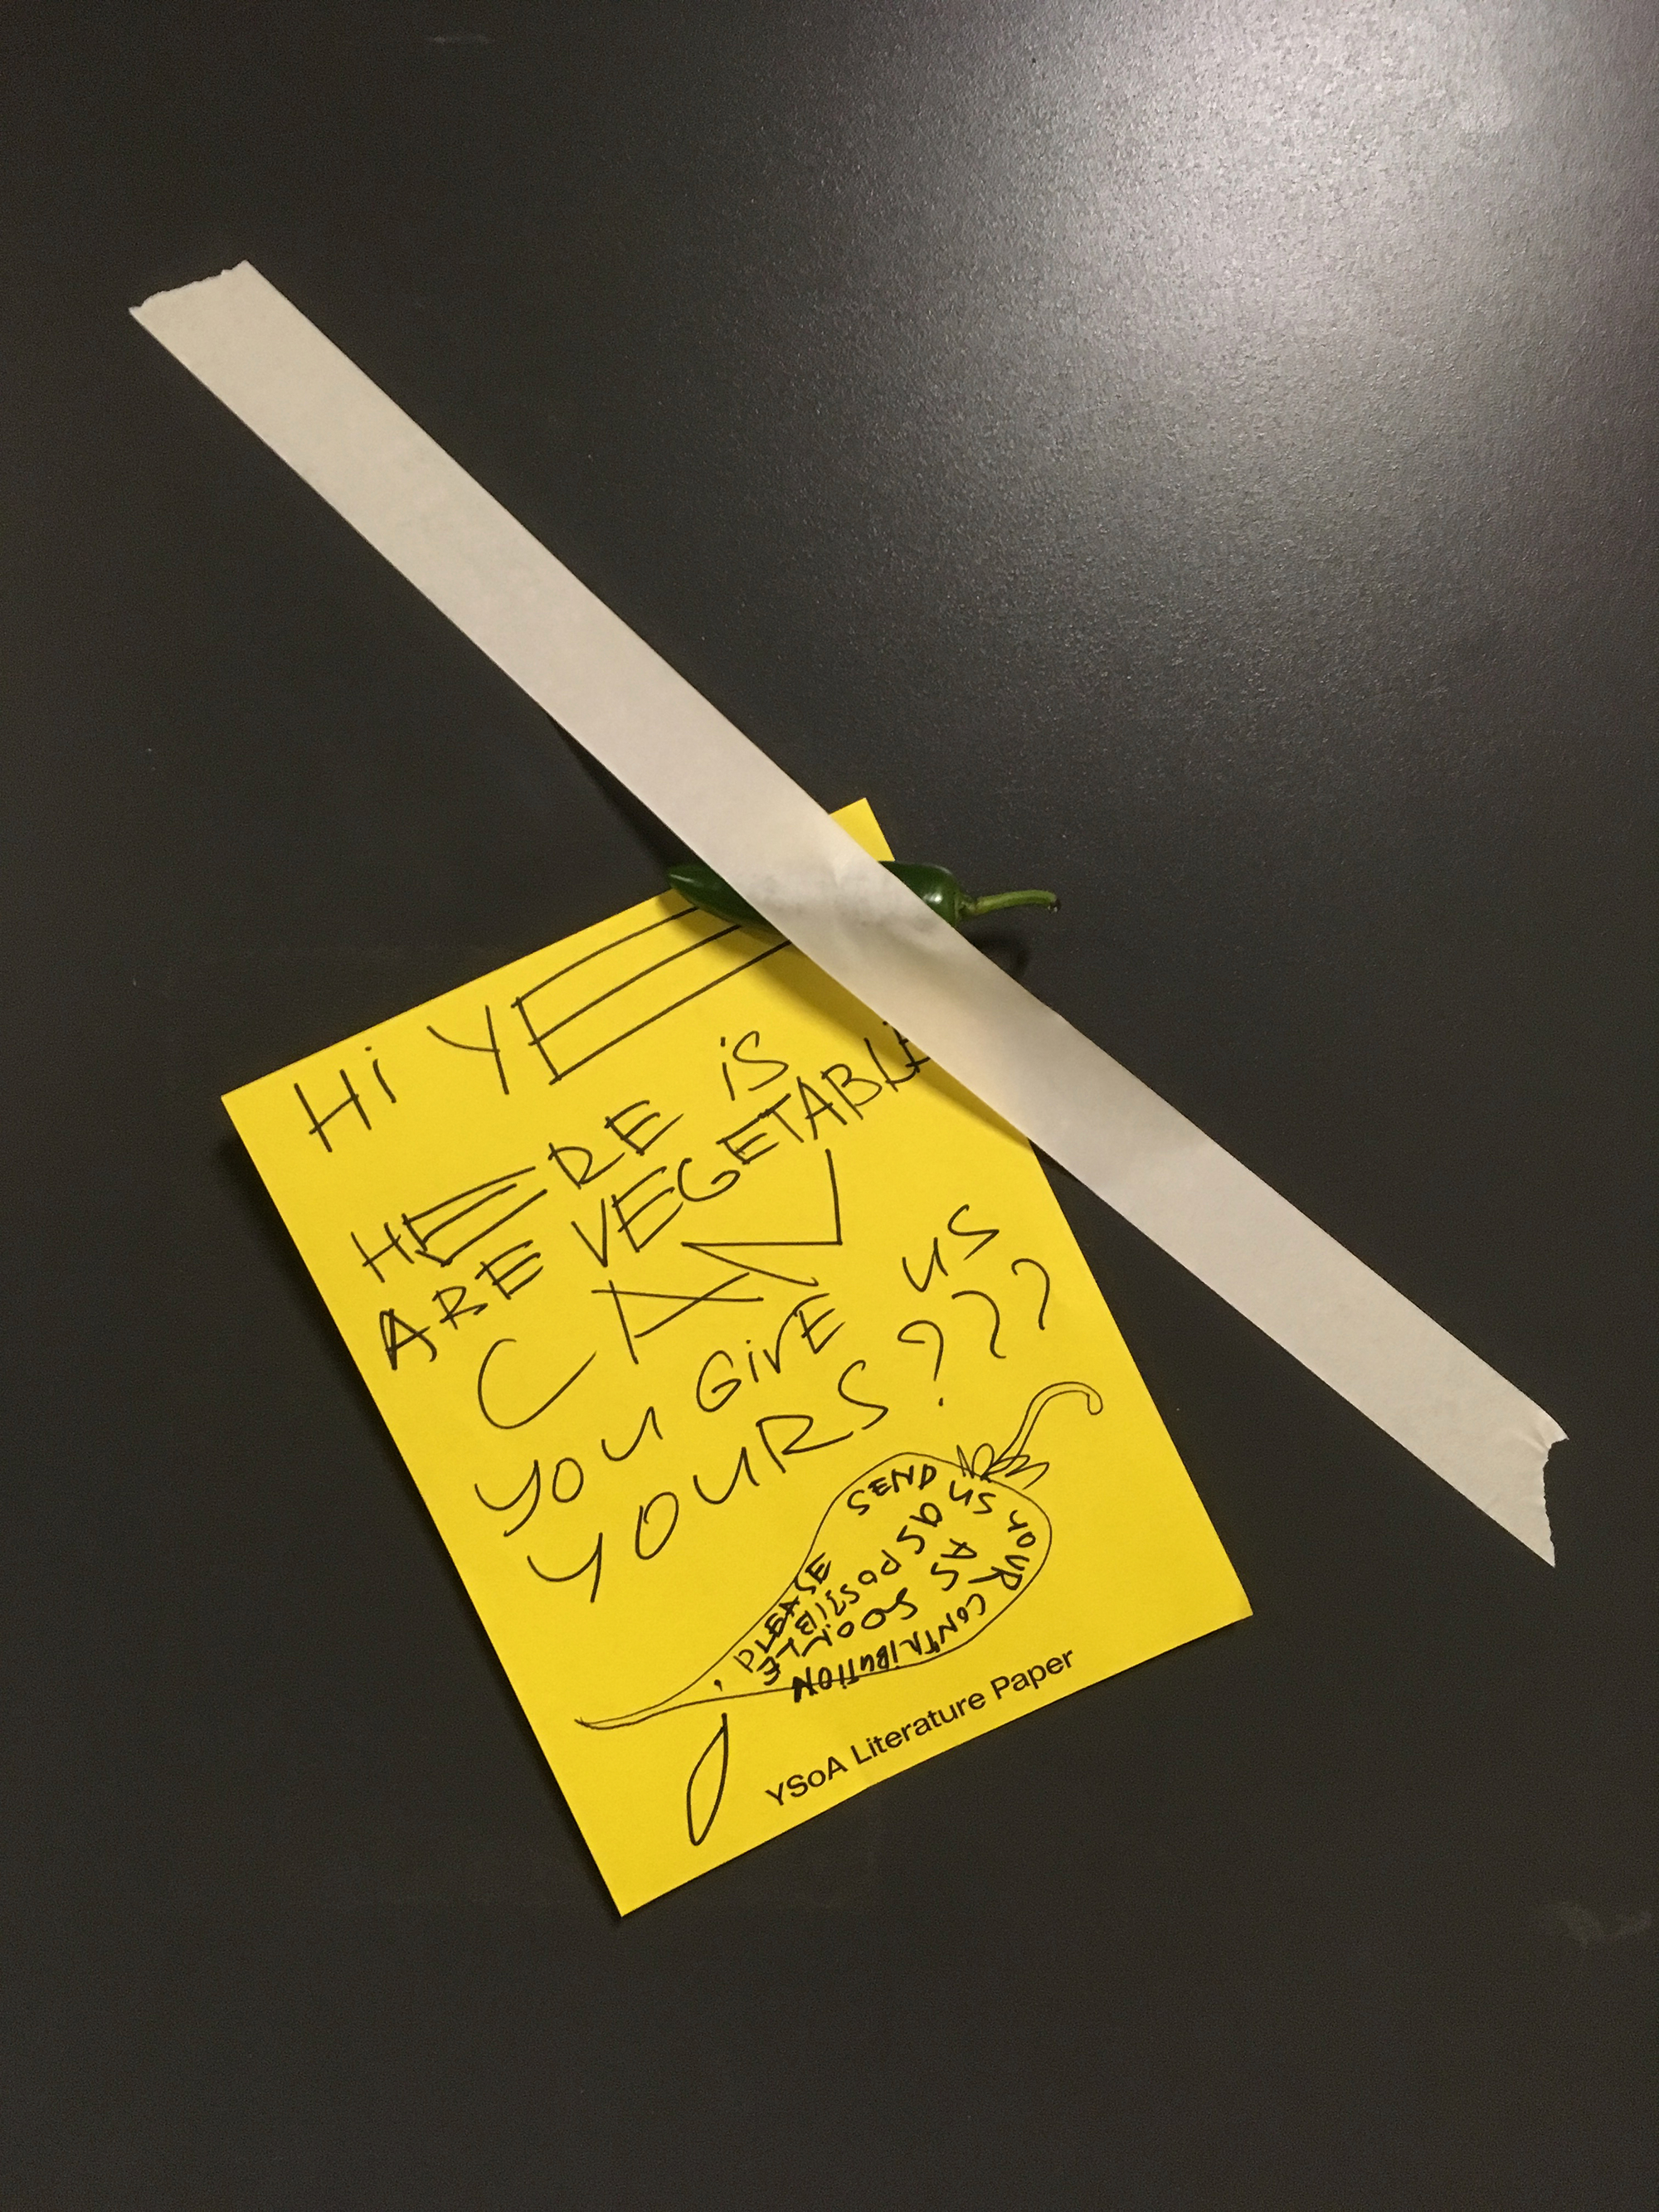 Hi YE
HERE is
ARE VEGETABLE
CAN
YOU GIVE US
YOURS???
SEND US YOUR CONTRIBUTION
AS SOON
AS POSSIBLE
PLEASE
YSoA Literature Paper